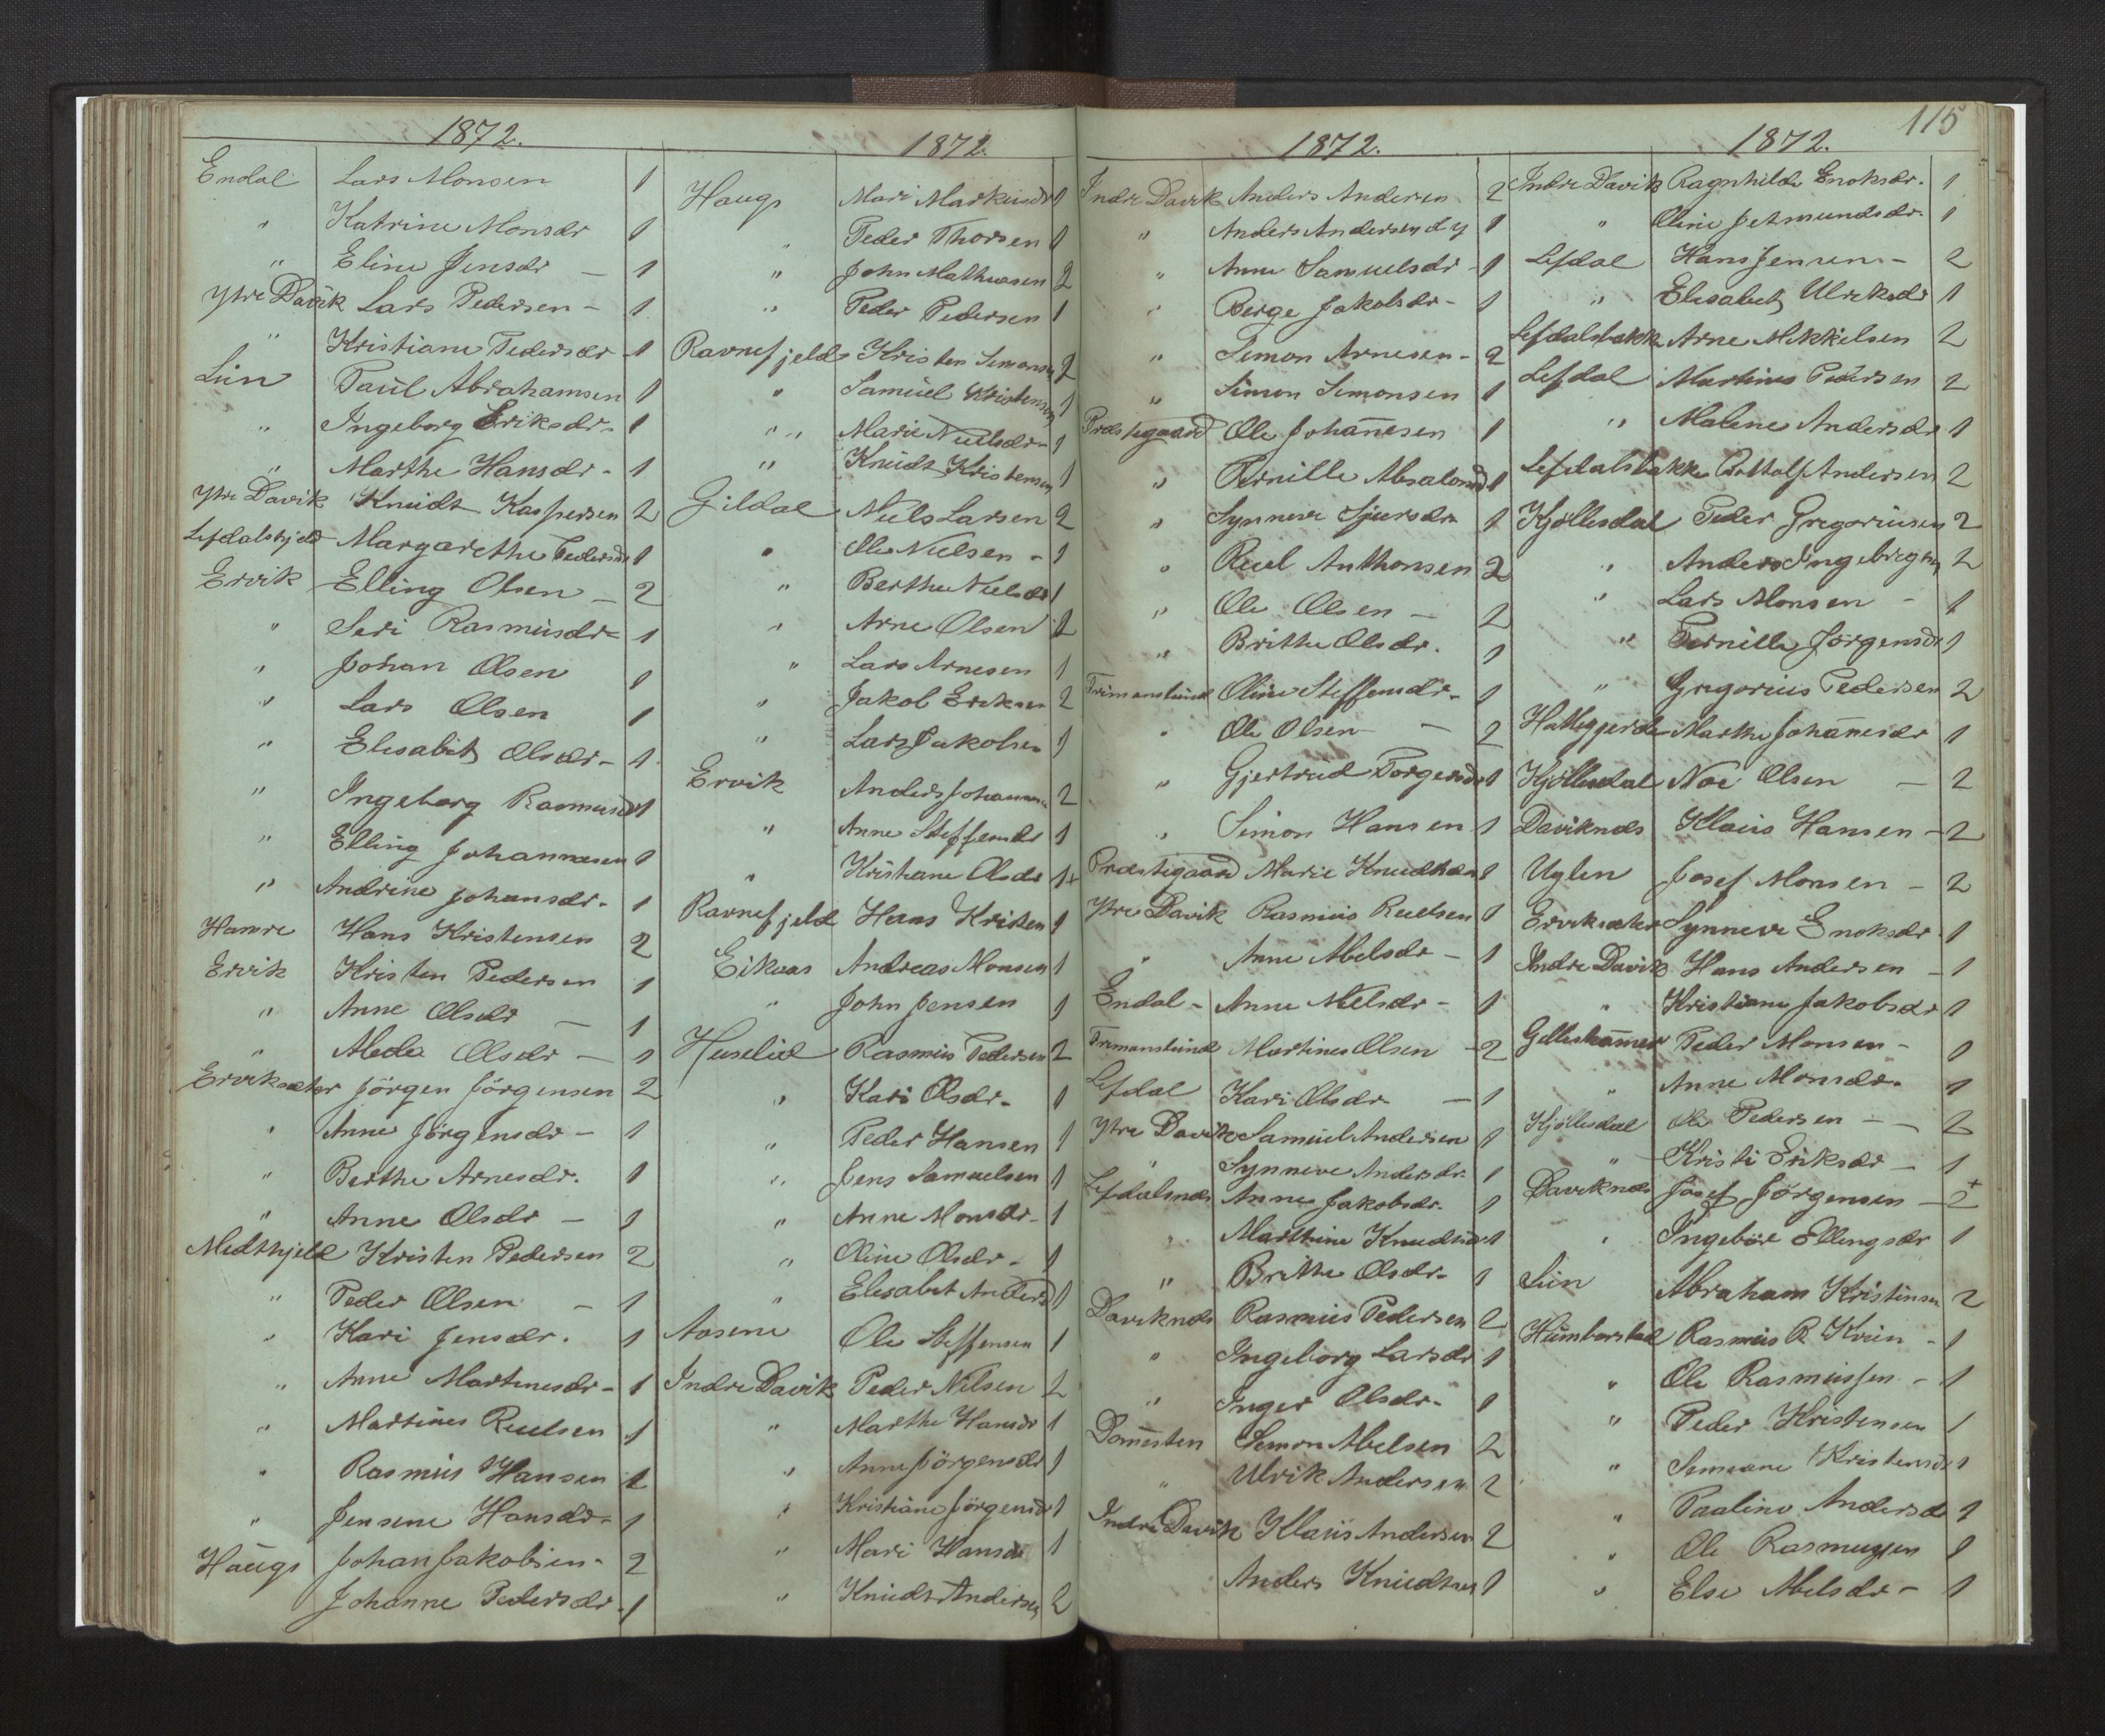 1872.
Endal Lars Monsen 1
" Katrine Monsdr 1
" Eline Jensdr - 1
Ytre Davik Lars Pedersen - 1
" Kristiane Pedersdr - 1
Lun Paul Abrahamsen 1
" Ingeborg Eriksdr - 1
" Marthe Hansdr - 1
Ytre Davik Knudt Kaspersen 2
Lefdalskjeld Margarethe Pedersdr 1
Ervik Elling Olsen - 2
" Seri Rasmusdr - 1
" Johan Olsen 1
" Lars Olsen 1
" Elisabet Olsdr - 1
" Ingeborg Rasmusdr 1
" Elling Johannesen 1
" Andrine Johansdr - 1
Hamre Hans Kristensen 2
Ervik Kristen Pedersen 1
" Anne Olsdr - 1
" Olsdr - 1
Erviksæter Jörgen Jörgensen 2
" Anne Jörgensdr - 1
" Berthe Arnesdr. 1
" Anne Olsdr - 1
Midthjell Kristen Pedersen 2
" Peder Olsen - 1
" Kari Jensdr. 1
" Anne Martinesdr - 1
" Martines Ruelsen 1
" Rasmus Hansen 1
" Jensene Hansdr - 1
Haugs Johan Jakobsen - 2
Johanne Pedersdr - 1
1872.
Haugs Mari Markusdr 1
" Peder Thorsen 1
" John Mathiasen 2
" Peder Pedersen 1
Ravnefjeld Kristen Simonsen 2
" Samuel Kristensen 1
" Marie Nielsdr - 1
" Knudt Kristensen 1
Gildal Niels Larsen 2
" Ole Nielsen - 1
" Berthe Nielsdr 1
" Arne Olsen 2
" Lars Arnesen 1
" Jakob Eriksen 2
" Lars Jakobsen 1
Ervik Anders Johannesen 2
" Anne Steffensdr 1
" Kristiane Olsdr 1+
Ravnefjeld Hans Kristen 1
Eikaas Andreas Monsen 1
" John Jensen 1
Huselid Rasmus Pedersen 2
" Kari Olsdr - 1
" Peder Hansen 1
" Jens Samuelsen 1
" Anne Monsdr - 1
" Oline Olsdr - 1
" Elisabet Andersd 1
Aasene Ole Steffensen 1
Indre Davik Peder Nilsen 2
" Marthe Hansdr 1
" Anne Jörgensdr 1
" Kristiane Jörgensdr 1
" Mari Hansdr 1
" Knudt Andersen 2
1872.
Indre Davik Anders Andersen 2
" Anders Andersen d y 1
" Anne Samuelsdr - 1
" Berge Jakobsdr - 1
" Simon Arnesen - 2
" Simon Simonsen 1
Præstegaard Ole Johannesen 1
" Pernille Absalonsd 1
" Synneve Sjursdr 1
" Ruel Anthonsen 2
" Ole Olsen - 2
" Brithe Olsdr. 1
Frimanslund Oline Steffensdr - 1
" Ole Olsen - 2
" Gjertrud Torgersdr 1
" Simon Hansen 1
Præstegaard Marie Knudtsdr 1
Ytre Davik Rasmus Ruelsen 1
" Anne Abelsdr - 1
Endal - Anne Nilsdr - 1
Frimanslund Martines Olsen - 2
Lefdal Kari Olsdr - 1
Ytre Davik Samuel Andersen 1
" Synneve Andersdr. 1
Lefdalsnds Anne Jakobsdr. 1
" Marthine Knudtsdr 1
" Brithe Olsdr - 1
Daviknds Rasmus Pedersen 2
" Ingeborg Larsdr 1
" Inger Olsdr - 1
Domesten Simon Abelsen 2
" Ulrik Andersen 2
Indre Davik Klaus Andersen 2
Anders Knudtsen 1
115
1872.
Indre Davik Ragnhilde Enoksdr. 1
" Oline Jetmundsdr. 1
Lefdal Hans Jensen - 2
" Elisabet Ulriksdr 1
Lefdalsbakk Arne Mikkelsen 2
Lefdal Martines Pedersen 2
" Malene Andersdr 1
Lefdalsbakke Andersen 2
Kjöllesdal Peder Gregoriusen 2
" Anders Ingebrigtsen 2
" Lars Monsen - 1
" Pernille Jörgensdr 1
" Gregorius Pedersen 2
Hattegjerde Marthe Johannesdr 1
Kjöllesdal Noe Olsen - 2
Daviknds Klaus Hansen - 2
Uglen Josef Monsen - 2
Erviksæter Synneve Enoksdr. 1
Indre Davik Hans Andersen - 1
" Kristiane Jakobsdr 1
Gelleshammer Peder Monsen - 1
" Anne Monsdr. 1
Kjöllesdal Ole Pedersen - - 2
" Kristi Eriksdr - 1
Daviknds Josef Jörgensen - 2+
" Ingebör Ellingsdr 1
Lun Abraham Kristensen 2
Humborstad Rasmus R Kvien - 1
" Ole Rasmussen - 1
" Peder Kristensen 1
" Simeane Kristensdr 1
" Paaline Andersdr 1
" Ole Rasmussen 1
" Else Abelsdr - 1